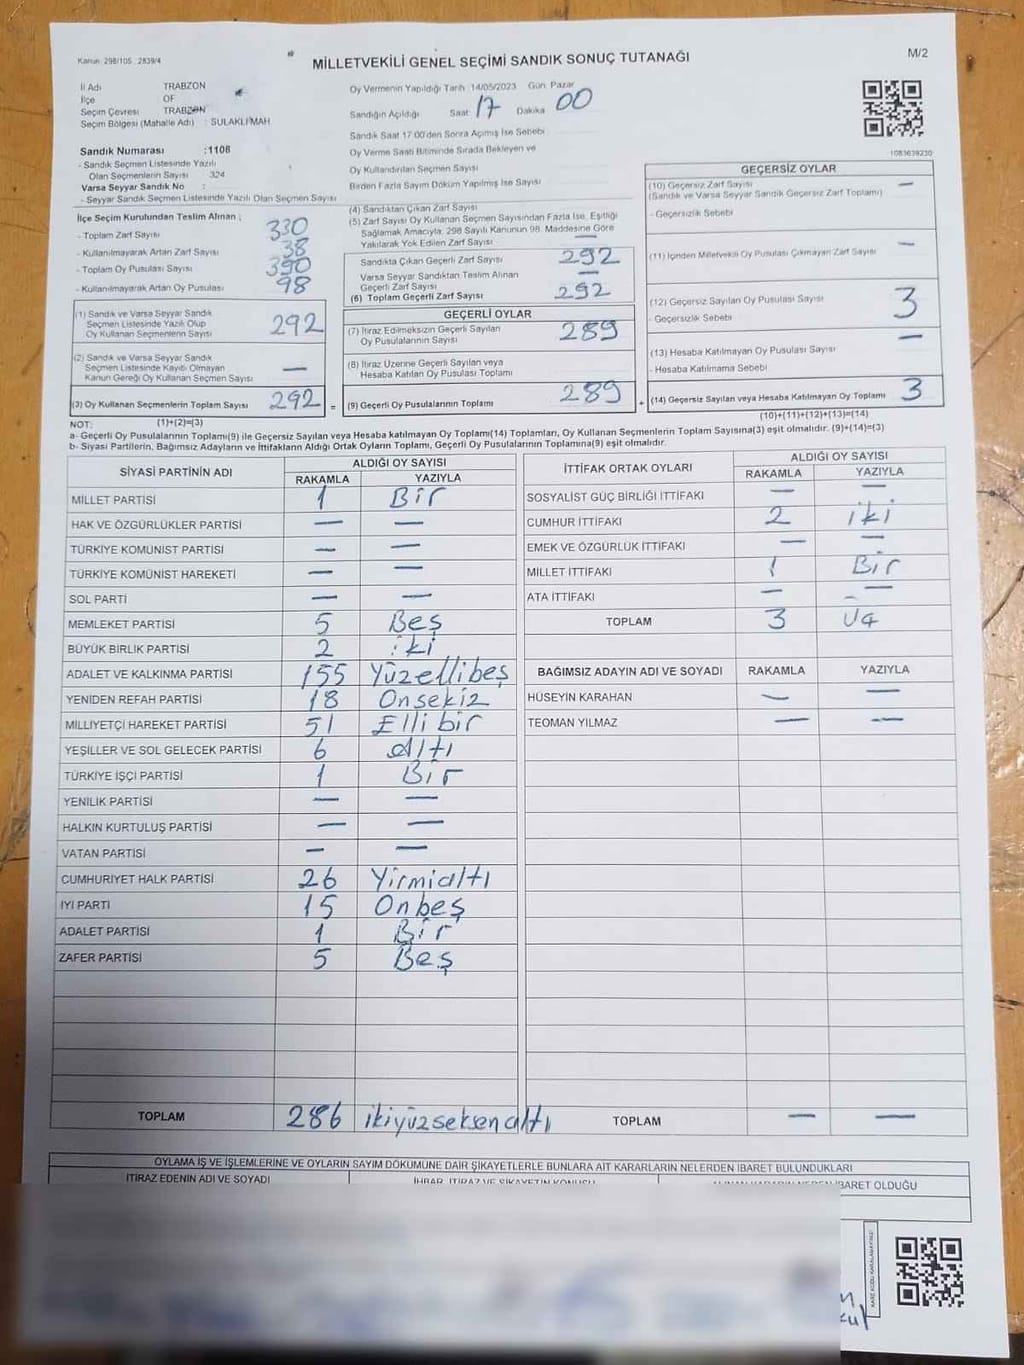 Kanun: 298/105 2839/4
MİLLETVEKİLİ GENEL SEÇİMİ SANDIK SONUÇ TUTANAĞI
M/2
İl Adı TRABZON
İlçe OF
Seçim Çevresi TRABZON
Seçim Bölgesi (Mahalle Adı) : SULAKLI MAH
Oy Vermenin Yapıldığı Tarih 14/05/2023 Gün: Pazar
Sandığın Açıldığı Saat 17 Dakika 00
Sandık Saat 17:00'den Sonra Açımış İse Sebebi
Oy Verme Saati Bitiminde Sırada Bekleyen ve
Oy Kullandırılan Seçmen Sayısı
Birden Fazla Sayım Döküm Yapılmış İse Sayısı
1083639230
Sandık Numarası :1108
- Sandık Seçmen Listesinde Yazılı
Olan Seçmenlerin Sayısı 324
Varsa Seyyar Sandık No :
- Seyyar Sandık Seçmen Listesinde Yazılı Olan Seçmen Sayısı
İlçe Seçim Kurulundan Teslim Alınan ;
- Toplam Zarf Sayısı 330
- Kullanılmayarak Artan Zarf Sayısı 38
- Toplam Oy Pusulası Sayısı 390
- Kullanılmayarak Artan Oy Pusulası 98
(1) Sandık ve Varsa Seyyar Sandık
Seçmen Listesinde Yazılı Olup
Oy Kullanan Seçmenlerin Sayısı 292
(2) Sandık ve Varsa Seyyar Sandık
Seçmen Listesinde Kaydı Olmayan
Kanun Gereği Oy Kullanan Seçmen Sayısı —
(3) Oy Kullanan Seçmenlerin Toplam Sayısı 292 =
(4) Sandıktan Çıkan Zarf Sayısı
(5) Zarf Sayısı Oy Kullanan Seçmen Sayısından Fazla İse, Eşitliği
Sağlamak Amacıyla, 298 Sayılı Kanunun 98. Maddesine Göre
Yakılarak Yok Edilen Zarf Sayısı —
Sandıkta Çıkan Geçerli Zarf Sayısı 292
Varsa Seyyar Sandıktan Teslim Alınan
Geçerli Zarf Sayısı —
(6) Toplam Geçerli Zarf Sayısı 292
GEÇERLİ OYLAR
(7) İtiraz Edilmeksizin Geçerli Sayılan
Oy Pusulalarının Sayısı 289
(8) İtiraz Üzerine Geçerli Sayılan veya
Hesaba Katılan Oy Pusulası Toplamı
(9) Geçerli Oy Pusulalarının Toplamı 289 +
GEÇERSİZ OYLAR
(10) Geçersiz Zarf Sayısı —
(Sandık ve Varsa Seyyar Sandık Geçersiz Zarf Toplamı)
- Geçersizlik Sebebi
(11) İçinden Milletvekili Oy Pusulası Çıkmayan Zarf Sayısı —
(12) Geçersiz Sayılan Oy Pusulası Sayısı 3
- Geçersizlik Sebebi
(13) Hesaba Katılmayan Oy Pusulası Sayısı —
- Hesaba Katılmama Sebebi
(14) Geçersiz Sayılan veya Hesaba Katılmayan Oy Toplamı 3
NOT: (1)+(2)=(3)
(10)+(11)+(12)+(13)=(14)
a- Geçerli Oy Pusulalarının Toplamı(9) ile Geçersiz Sayılan veya Hesaba katılmayan Oy Toplamı(14) Toplamları, Oy Kullanan Seçmenlerin Toplam Sayısına(3) eşit olmalıdır. (9)+(14)=(3)
b- Siyasi Partilerin, Bağımsız Adayların ve İttifakların Aldığı Ortak Oyların Toplamı, Geçerli Oy Pusulalarının Toplamına(9) eşit olmalıdır.
SİYASİ PARTİNİN ADI ALDIĞI OY SAYISI
RAKAMLA YAZIYLA
MİLLET PARTİSİ 1 Bir
HAK VE ÖZGÜRLÜKLER PARTİSİ — —
TÜRKİYE KOMÜNİST PARTİSİ — —
TÜRKİYE KOMÜNİST HAREKETİ — —
SOL PARTİ — —
MEMLEKET PARTİSİ 5 Beş
BÜYÜK BİRLİK PARTİSİ 2 iki
ADALET VE KALKINMA PARTİSİ 155 Yüzellibeş
YENİDEN REFAH PARTİSİ 18 Onsekiz
MİLLİYETÇİ HAREKET PARTİSİ 51 Ellibir
YEŞİLLER VE SOL GELECEK PARTİSİ 6 Altı
TÜRKİYE İŞÇİ PARTİSİ 1 Bir
YENİLİK PARTİSİ — —
HALKIN KURTULUŞ PARTİSİ — —
VATAN PARTİSİ — —
CUMHURİYET HALK PARTİSİ 26 Yirmialtı
İYİ PARTİ 15 Onbeş
ADALET PARTİSİ 1 Bir
ZAFER PARTİSİ 5 Beş
TOPLAM 286 ikiyüzseksenaltı
İTTİFAK ORTAK OYLARI ALDIĞI OY SAYISI
RAKAMLA YAZIYLA
SOSYALİST GÜÇ BİRLİĞİ İTTİFAKI — —
CUMHUR İTTİFAKI 2 iki
EMEK VE ÖZGÜRLÜK İTTİFAKI — —
MİLLET İTTİFAKI 1 Bir
ATA İTTİFAKI — —
TOPLAM 3 Üç
BAĞIMSIZ ADAYIN ADI VE SOYADI RAKAMLA YAZIYLA
HÜSEYİN KARAHAN — —
TEOMAN YILMAZ — —
TOPLAM — —
OYLAMA İŞ VE İŞLEMLERİNE VE OYLARIN SAYIM DÖKÜMÜNE DAİR ŞİKAYETLERLE BUNLARA AİT KARARLARIN NELERDEN İBARET BULUNDUKLARI
İTİRAZ EDENİN ADI VE SOYADI İHBAR, İTİRAZ VE ŞİKAYETİN KONUSU İBARET OLDUĞU